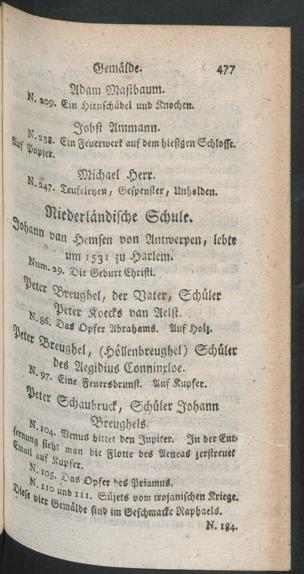 Gemälde. 477
Adam Mastbaum.
N. 209. Ein Hirnschädel und Knochen.
Jobst Ammann.
N. 238. Ein Feuerwerk auf dem hiesigen Schlosse.
Auf Papier.
Michael Herr.
N. 247. Teufeleyen, Gespenster, Unholden.
Niederländische Schule.
Johann van Hemsen von Antwerpen, lebte
um 1531 zu Harlem.
Num. 29. Die Geburt Christi.
Peter Breughel, der Vater, Schüler
Peter Koecks van Aelst.
N. 86. Das Opfer Abrahams. Auf Holz.
Peter Breughel, (Höllenbreughel) Schüler
des Aegidius Conninxloe.
N. 97. Eine Feuersbrunst. Auf Kupfer.
Peter Schaubruck, Schüler Johann
Breughels.
N. 104. Venus bittet den Jupiter. In der Ent-
fernung sieht man die Flotte des Aeneas zerstreuet
Email auf Kupfer.
N. 105. Das Opfer des Priamus.
N. 110 und 111. Süjets vom trojanischen Kriege.
Diese vier Gemälde sind im Geschmacke Raphaels.
N. 184.